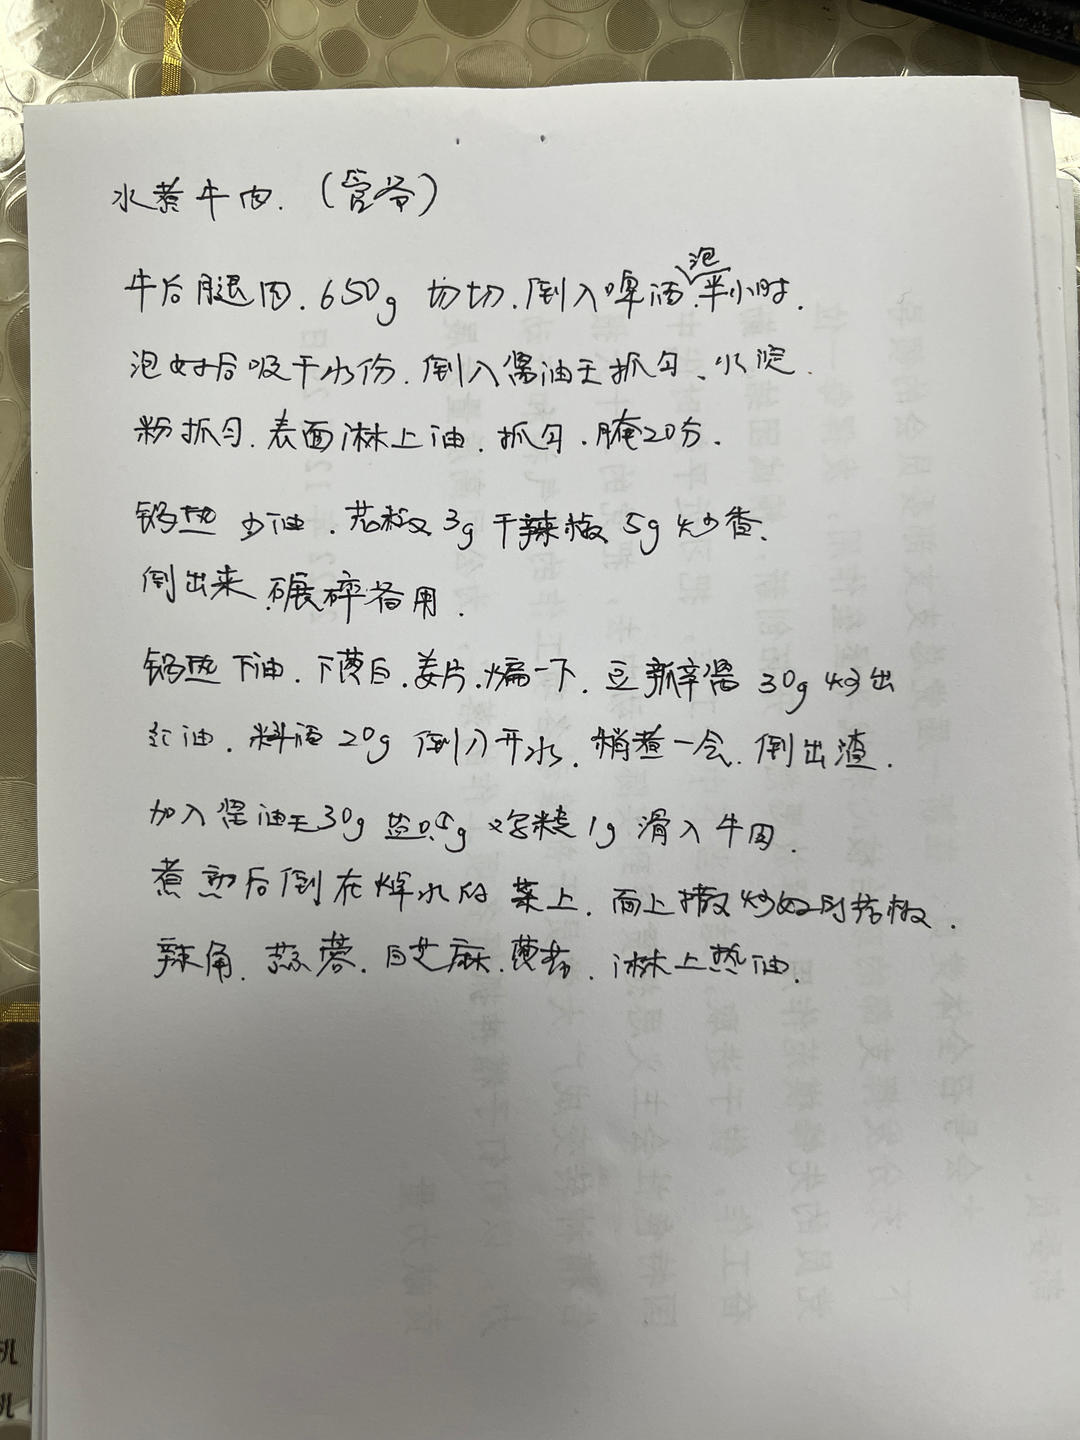 水煮牛肉.（管爷）
牛后腿肉.650g 切切.倒入啤酒.泡半小时.
泡好后吸干水份.倒入酱油王抓匀、水淀
粉抓匀.表面淋上油.抓匀.腌20分.
锅热 少油.花椒 3g 干辣椒 5g 炒香.
倒出来.碾碎备用.
锅热下油.下葱白.姜片.煸一下.豆瓣酱 30g 炒出
红油.料酒 20g 倒入开水.稍煮一会.倒出渣.
加入酱油王30g 盐0.5g 鸡精1g 滑入牛肉.
煮熟后倒在焯水的菜上.面上撒炒好的花椒.
辣角.蒜蓉.白芝麻.葱花.淋上热油.